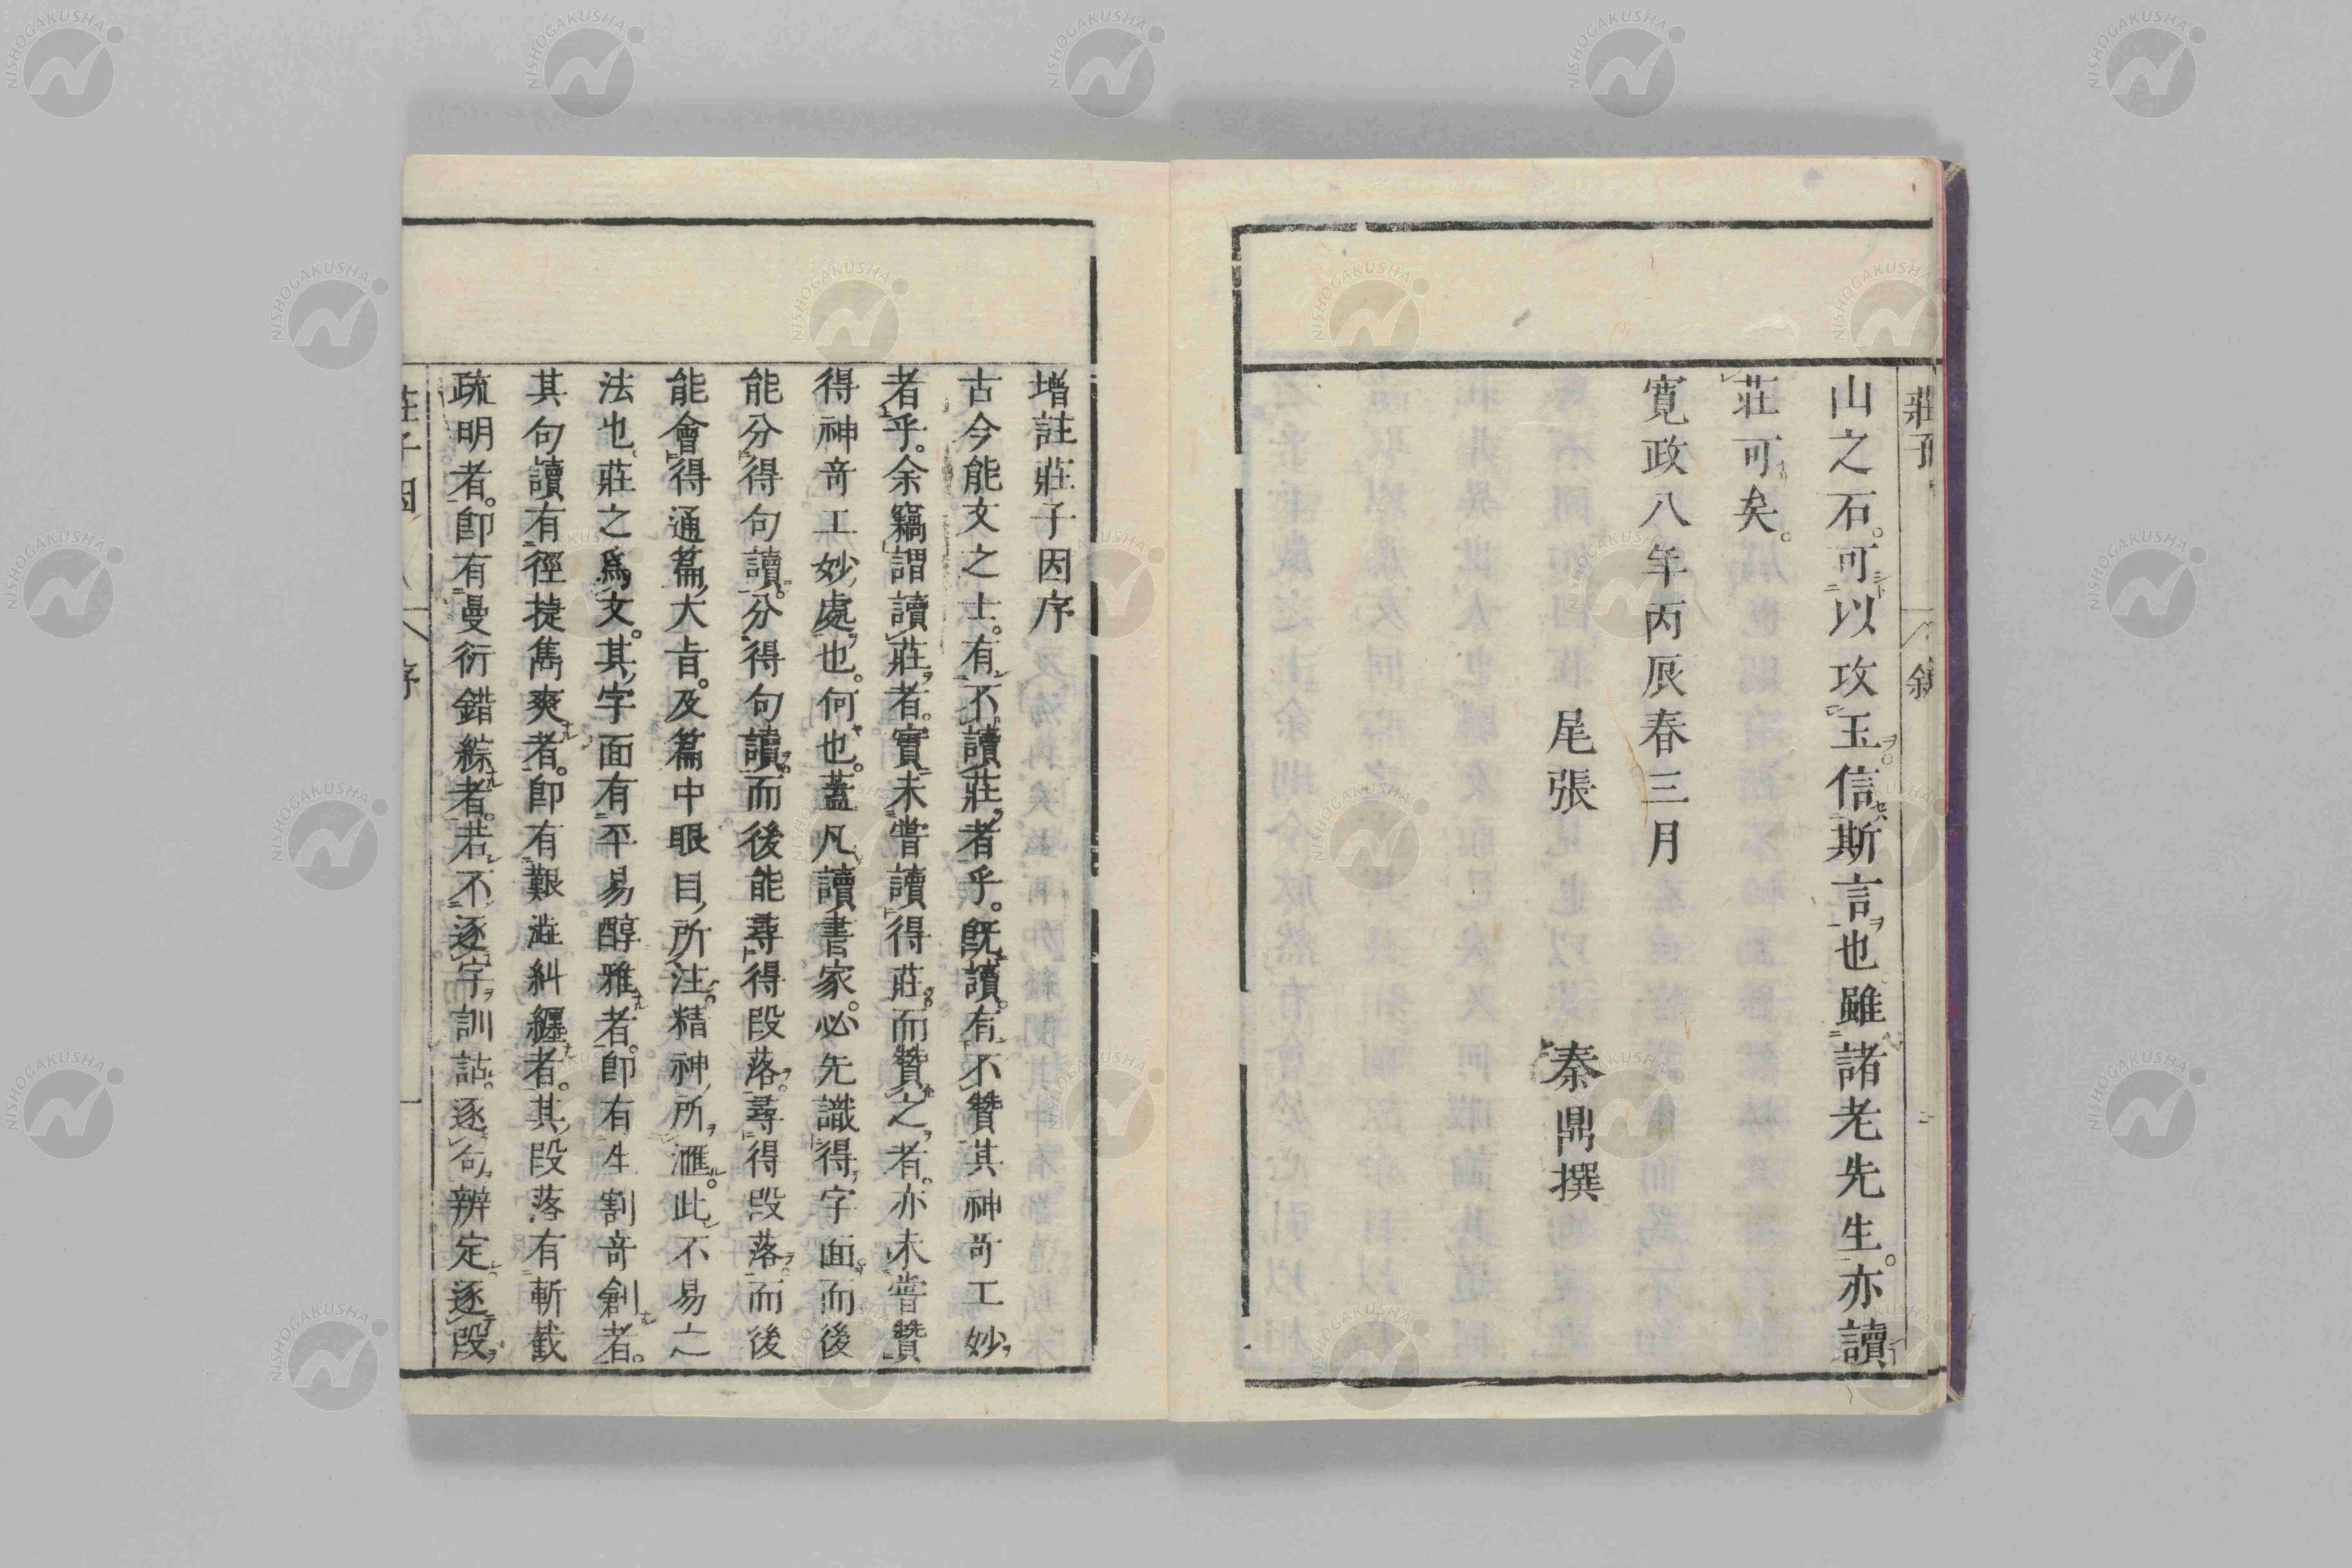 莊子
敘
山之石。可以攻玉。信斯言也雖諸老先生。亦讀
莊可矣。
寛政八年丙辰春三月
尾張 秦鼎撰
増註莊子因序
古今能文之士。有不讀莊者乎。既讀。有不贊其神竒工妙
者乎。余竊謂讀莊者。實未甞讀得莊。而贊之者。亦未甞贊
得神竒工妙處也。何也。蓋凡讀書家。必先識得字面。而後
能分得句讀。分得句讀。而後能尋得段落。尋得段落。而後
能會得通篇大旨。及篇中眼目所注。精神所滙。此不易之
法也。莊之爲文。其字面有平易醇雅者。即有生割竒創者。
其句讀有徑捷雋爽者。即有艱澁糾纒者。其段落有斬截
疏明者。即有曼衍錯綜者。若不逐字訓詁。逐句辨定逐段
莊子因
序
一
NISHOGAKUSHA